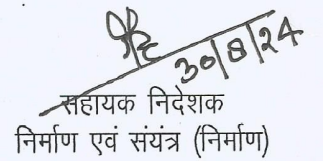 30/8/24
सहायक निदेशक
निर्माण एवं संयंत्र (निर्माण)